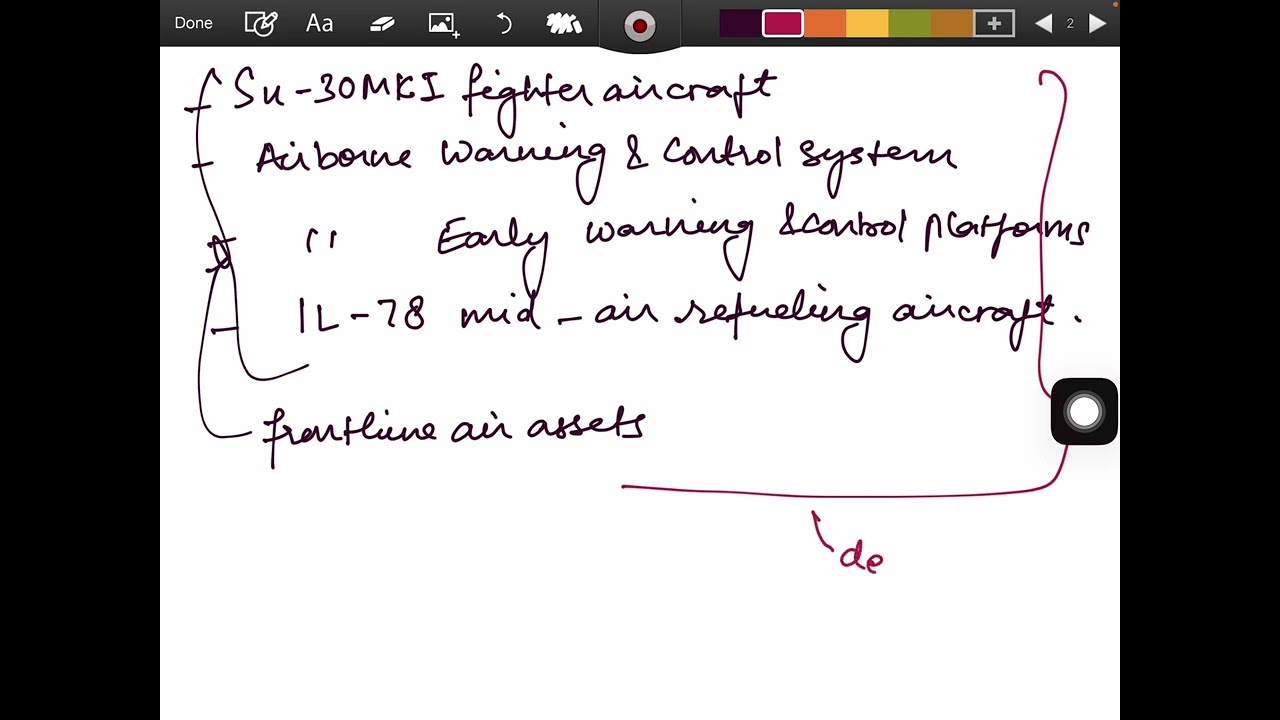 Done Aa 2
Su-30MKI fighter aircraft
Airborne Warning & Control System
" Early warning & control platforms
IL-78 mid-air refueling aircraft.
frontline air assets
de